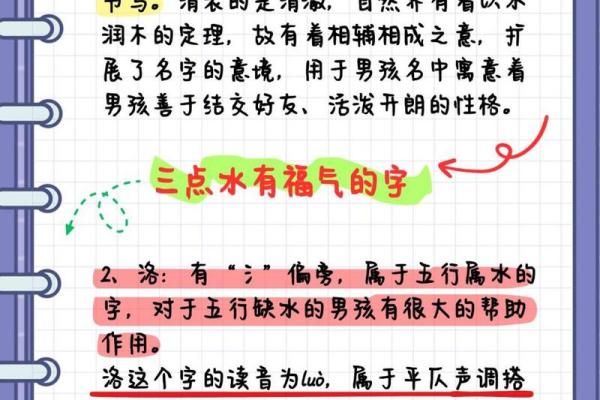 润木的定理，故有着相辅相成之意，扩
展了名字的意境，用于男孩名中寓意着
男孩善于结交好友、活泼开朗的性格。
三点水有福气的字
2、洛：有“氵”偏旁，属于五行属水的
字，对于五行缺水的男孩有很大的帮助
作用。
洛这个字的读音为luò，属于平仄声调搭